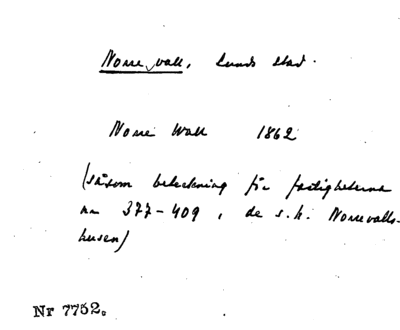 Norre vall, Lunds stad.
Norre Wall 1862
(såsom beteckning för fastigheterna
nr 377-409, de s.k. Norrevalls-
husen)
Nr 7752.